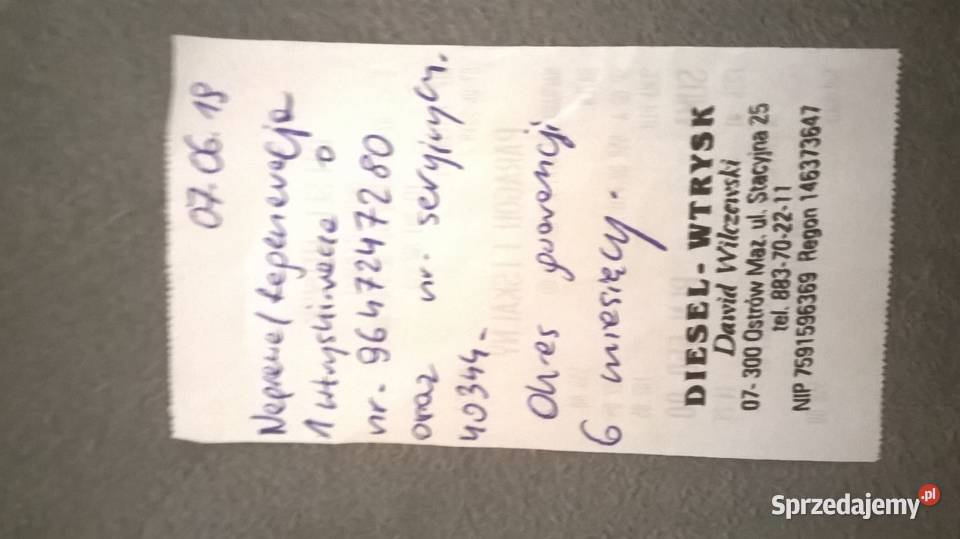 07.06.18
Naprawa/Regeneracja
1 wtryskiwacza o
nr. 9647247280
oraz nr. seryjnym.
40344-
Okres gwarancji
6 miesięcy.
DIESEL - WTRYSK
Dawid Wilczewski
07- 300 Ostrów Maz. ul. Stacyjna 25
tel. 883-70-22-11
NIP 7591596369 Regon 146373647
Sprzedajemy.pl